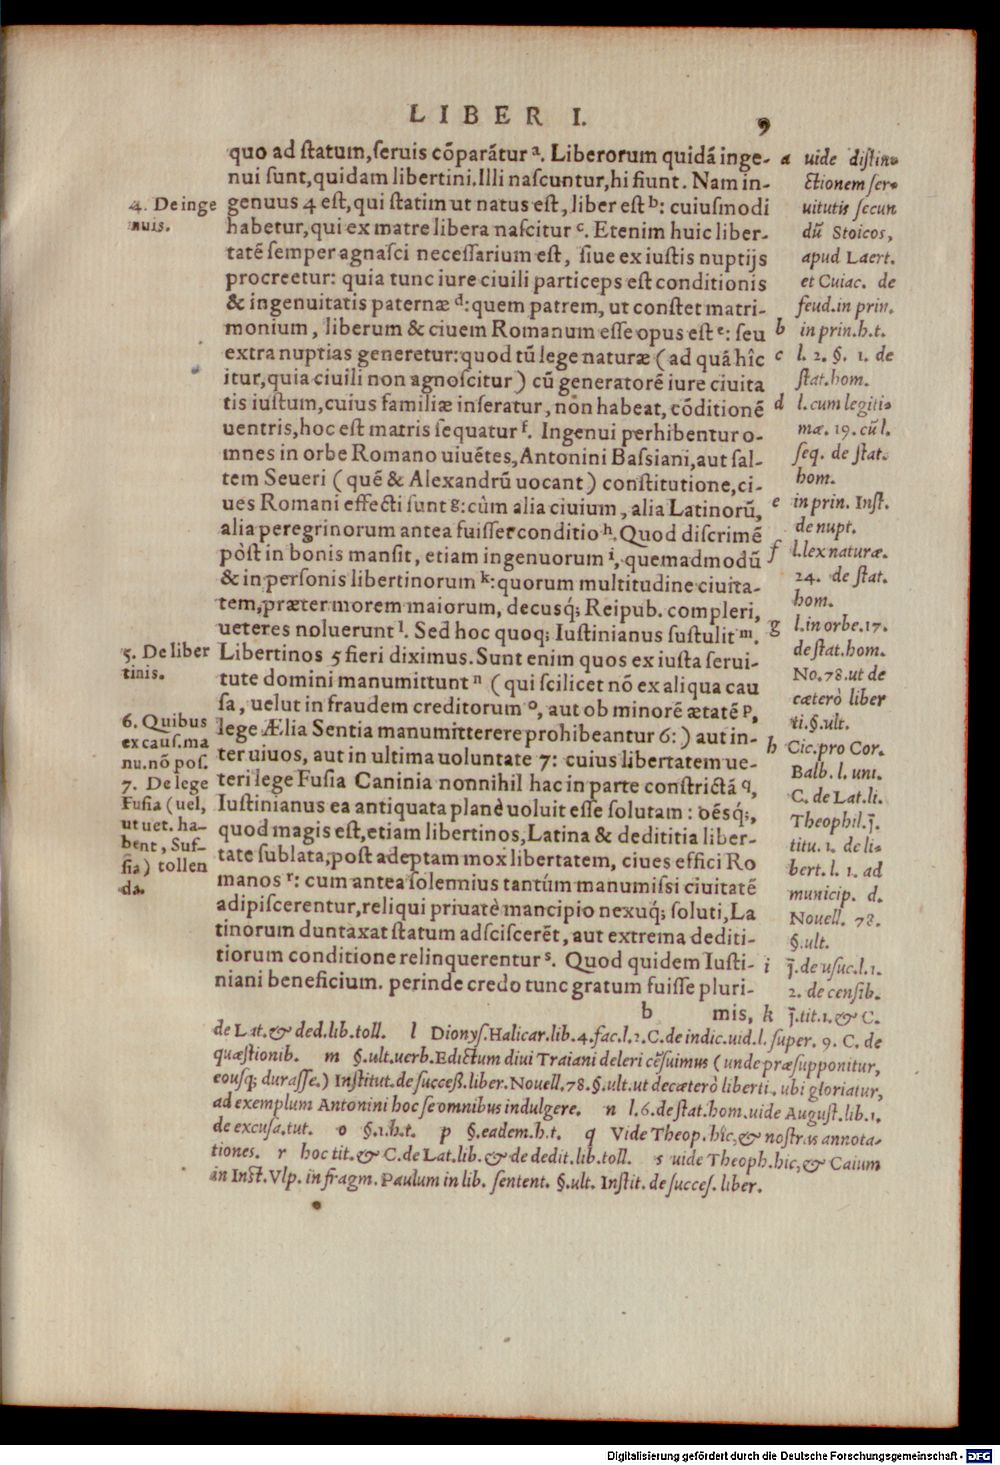 LIBER I.
9
quo ad ſtatum, ſeruis cōparātur a. Liberorum quidā inge-
nui ſunt, quidam libertini. Illi naſcuntur, hi fiunt. Nam in-
genuus 4 eſt, qui ſtatim ut natus eſt, liber eſt b: cuiuſmodi
habetur, qui ex matre libera naſcitur c. Etenim huic liber-
tatē ſemper agnaſci neceſſarium eſt, ſiue ex iuſtis nuptijs
procreetur: quia tunc iure ciuili particeps eſt conditionis
& ingenuitatis paternæ d: quem patrem, ut conſtet matri-
monium, liberum & ciuem Romanum eſſe opus eſt e: ſeu
extra nuptias generetur: quod tū lege naturæ (ad quā hîc
itur, quia ciuili non agnoſcitur) cū generatorē iure ciuita
tis iuſtum, cuius familiæ inſeratur, nōn habeat, cōditionē
uentris, hoc eſt matris ſequatur f. Ingenui perhibentur o-
mnes in orbe Romano uiuētes, Antonini Baſsiani, aut ſal-
tem Seueri (quē & Alexandrū uocant) conſtitutione, ci-
ues Romani effecti ſunt g: cùm alia ciuium, alia Latinorū,
alia peregrinorum antea fuiſſet conditio h. Quod diſcrimē
pòſt in bonis manſit, etiam ingenuorum i, quemadmodū
& in perſonis libertinorum k: quorum multitudine ciuita-
tem, præter morem maiorum, decusq́; Reipub. compleri,
ueteres noluerunt l. Sed hoc quoq; Iuſtinianus ſuſtulit m.
Libertinos 5 fieri diximus. Sunt enim quos ex iuſta ſerui-
tute domini manumittunt n (qui ſcilicet nō ex aliqua cau
ſa, uelut in fraudem creditorum o, aut ob minorē ætatē p,
lege Ælia Sentia manumitterere prohibeantur 6:) aut in-
ter uiuos, aut in ultima uoluntate 7: cuius libertatem ue-
teri lege Fuſia Caninia nonnihil hac in parte conſtrictā q,
Iuſtinianus ea antiquata planè uoluit eſſe ſolutam: oēsq́;,
quod magis eſt, etiam libertinos, Latina & dedititia liber-
tate ſublata, poſt adeptam mox libertatem, ciues effici Ro
manos r: cum antea ſolennius tantùm manumiſsi ciuitatē
adipiſcerentur, reliqui priuatè mancipio nexuq́; ſoluti, La
tinorum duntaxat ſtatum adſciſcerēt, aut extrema dediti-
tiorum conditione relinquerentur s. Quod quidem Iuſti-
niani beneficium. perinde credo tunc gratum fuiſſe pluri-
b mis,
4. De inge
nuis.
5. De liber
tinis.
6. Quibus
ex cauſ. ma
nu. nō poſ.
7. De lege
Fuſia (uel,
ut uet. ha-
bent, Suf-
fia) tollen
da.
a uide diſtin-
ctionem ſer-
uitutis ſecun
dū Stoicos,
apud Laert.
et Cuiac. de
feud. in prin.
b in prin. h. t.
c l. 2. §. 1. de
ſtat. hom.
d l. cum legiti-
mæ. 19. cū l.
ſeq. de ſtat.
hom.
e in prin. Inſt.
de nupt.
f l. lex naturæ.
24. de ſtat.
hom.
g l. in orbe. 17.
de ſtat. hom.
No. 78. ut de
cæterò liber
ti. §. ult.
h Cic. pro Cor.
Balb. l. uni.
C. de Lat. li.
Theophil. J.
titu. 1. de li-
bert. l. 1. ad
municip. d.
Nouell. 78.
§. ult.
i J. de uſuc. l. 1.
2. de cenſib.
k J. tit. 1. & C.
de Lat. & ded. lib. toll. l Dionyſ. Halicar. lib. 4. fac. l. 2. C. de indic. uid. l. ſuper. 9. C. de
quæſtionib. m §. ult. uerb. Edictum diui Traiani deleri cēſuimus (unde præſupponitur,
eousq; duraſſe.) Inſtitut. de ſucceß. liber. Nouell. 78. §. ult. ut decæterò liberti, ubi gloriatur,
ad exemplum Antonini hoc ſe omnibus indulgere. n l. 6. de ſtat. hom. uide Auguſt. lib. 1.
de excuſa. tut. o §. 1. h. t. p §. eadem. h. t. q Vide Theop. hîc, & noſtras annota-
tiones. r hoc tit. & C. de Lat. lib. & de dedit. lib. toll. s uide Theoph. hic, & Caium
in Inſt. Vlp. in fragm. Paulum in lib. ſentent. §. ult. Inſtit. de ſucceſ. liber.
Digitalisierung gefördert durch die Deutsche Forschungsgemeinschaft - DFG